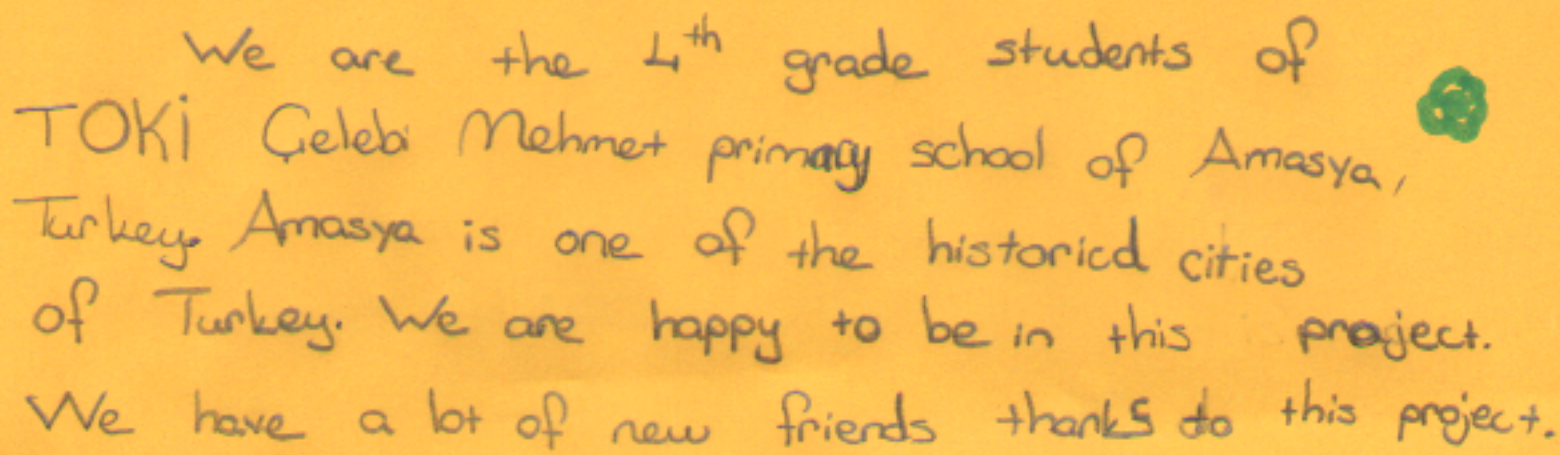 We are the 4th grade students of
TOKİ Çelebi Mehmet primary school of Amasya,
Turkey. Amasya is one of the historical cities
of Turkey. We are happy to be in this project.
We have a lot of new friends thanks to this project.